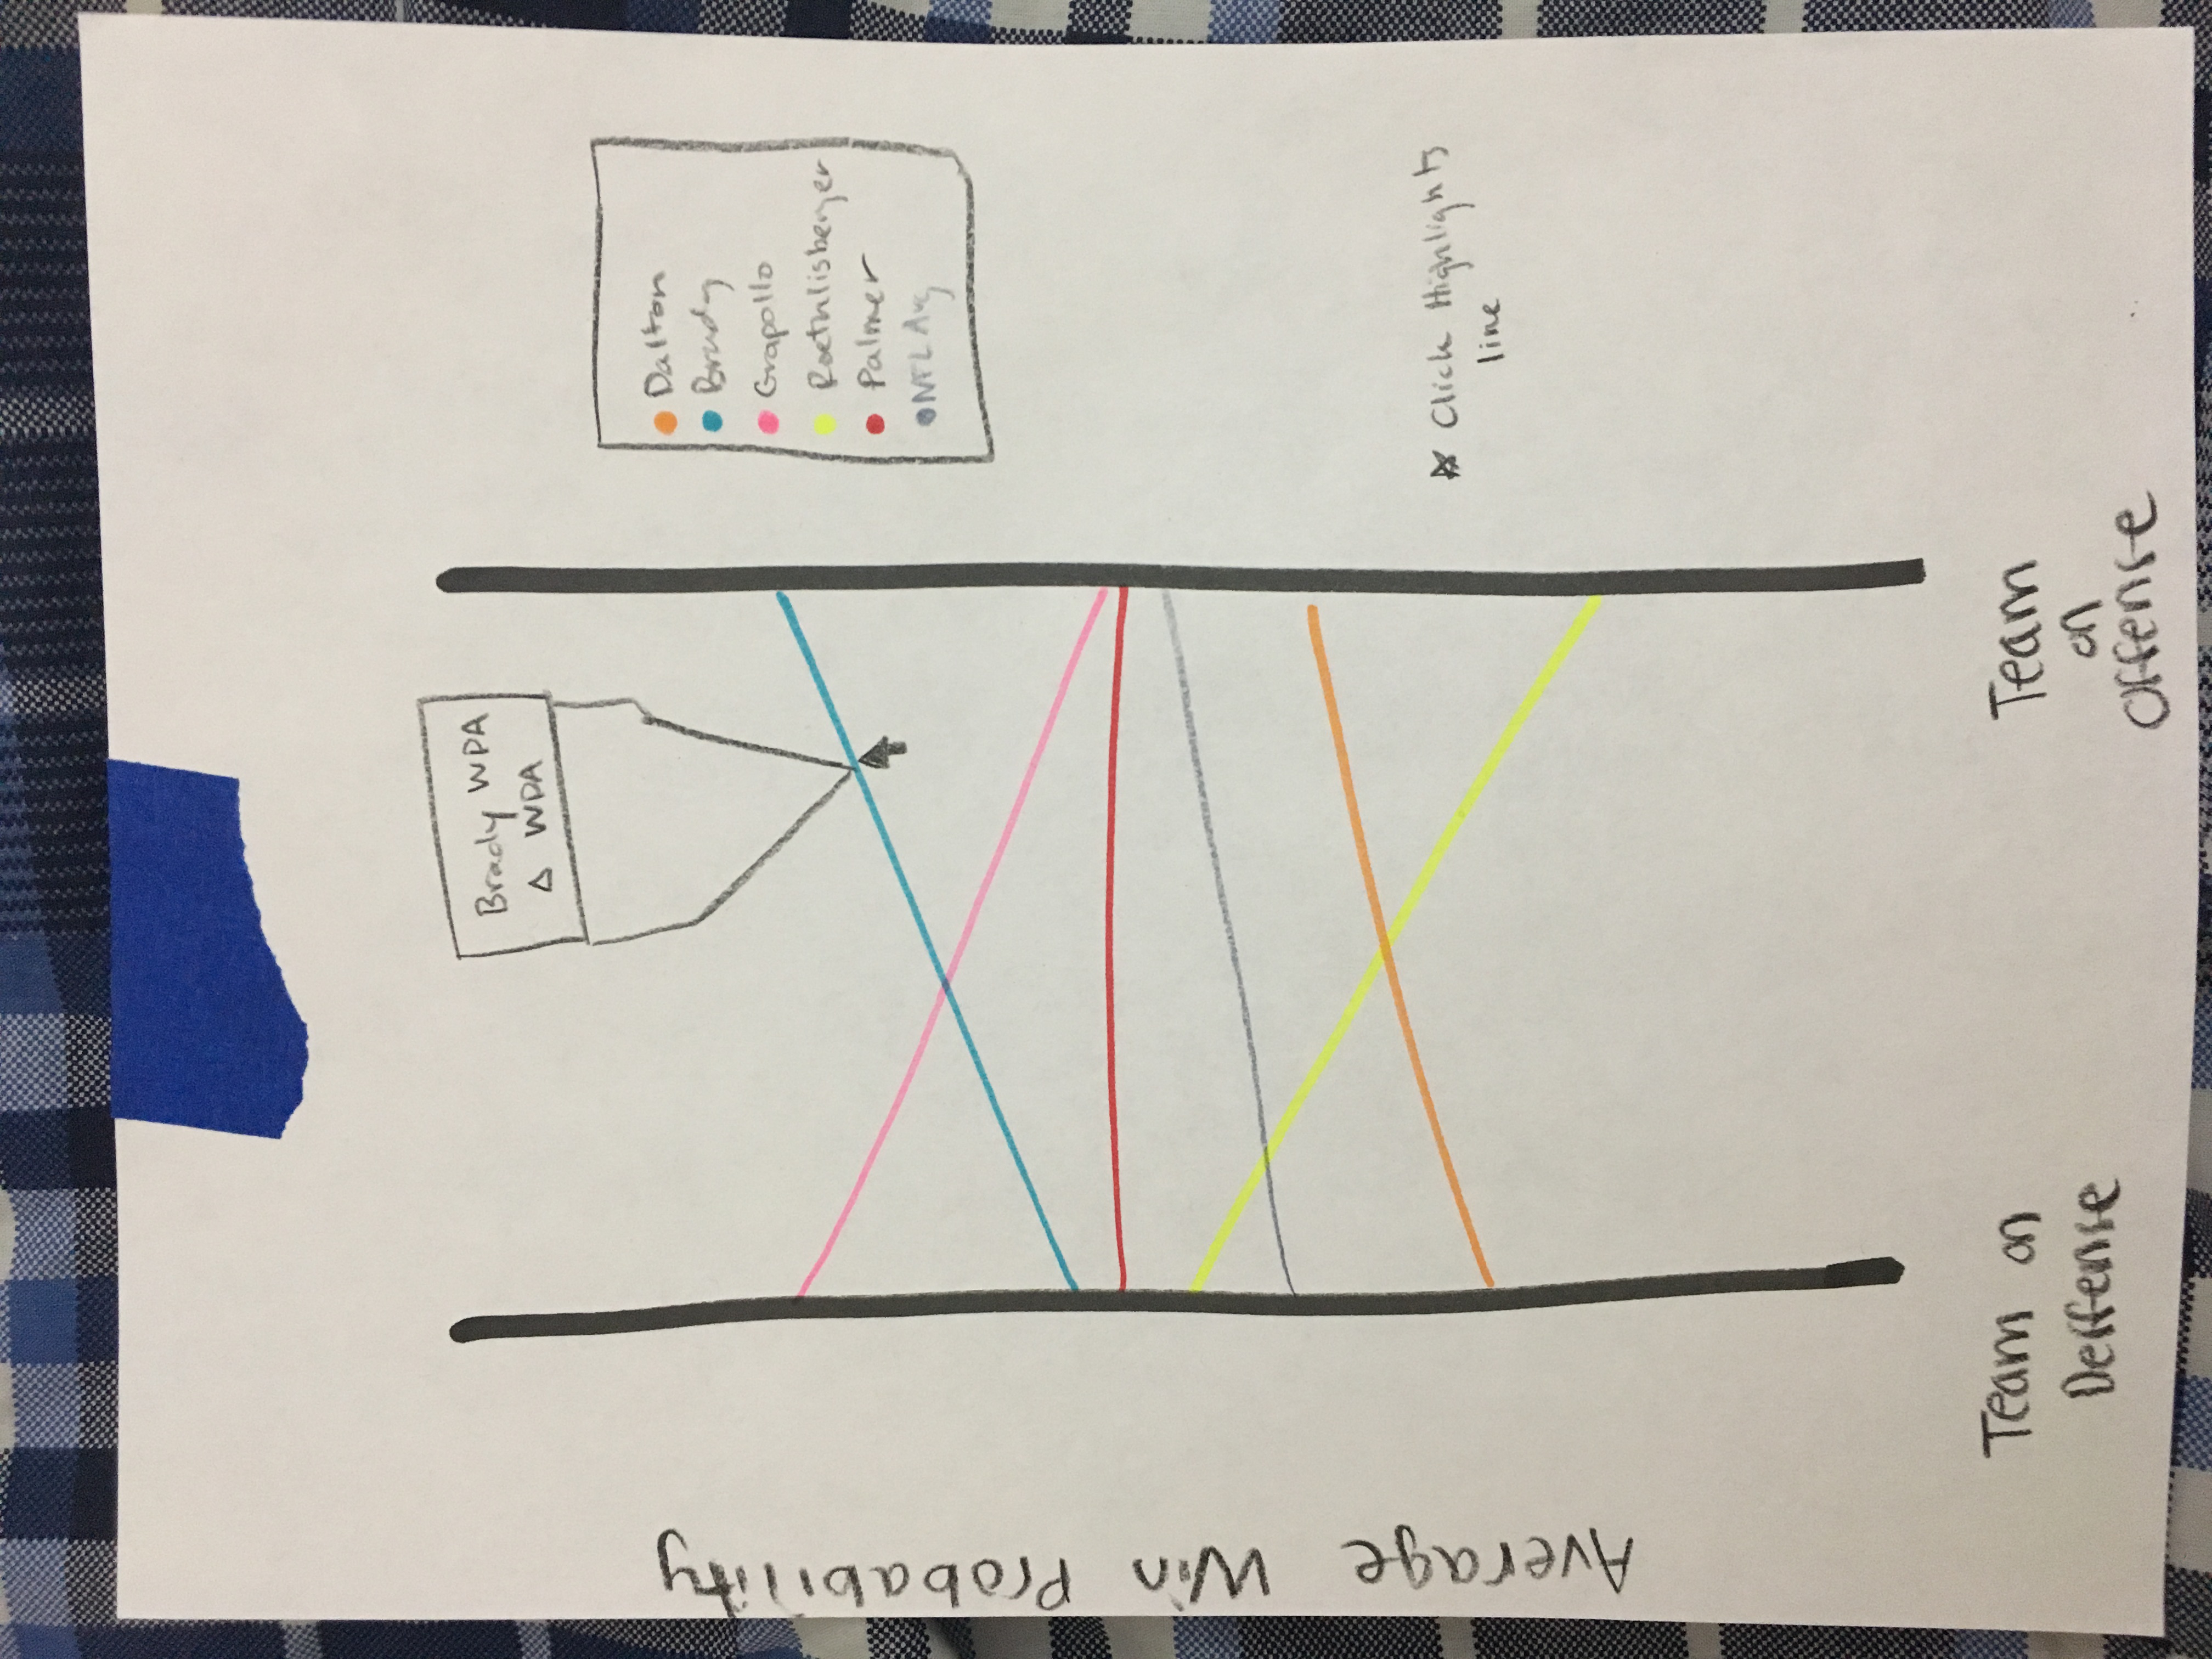 Average Win Probability
Brady WPA
Δ WPA
Dalton
Brady
Grapollo
Roethlisberger
Palmer
NFL Avg
* Click Highlights
line
Team on
Deffense
Team
on
Offense